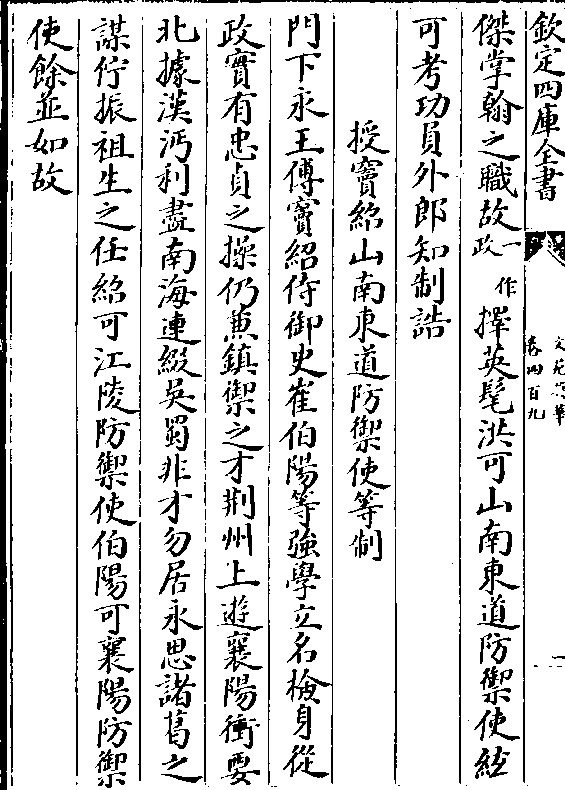 欽定四庫全書
文苑英華
卷四百九
傑掌翰之職故一作政擇英髦洪可山南東道防禦使紘
可考功員外郎知制誥
授竇紹山南東道防禦使等制
門下永王傅竇紹侍御史崔伯陽等強學立名檢身從
政實有忠貞之操仍兼鎮禦之才荆州上遊襄陽衝要
北據漢沔利盡南海連綴吳蜀非才勿居永思諸葛之
謀佇振祖生之任紹可江陵防禦使伯陽可襄陽防禦
使餘並如故